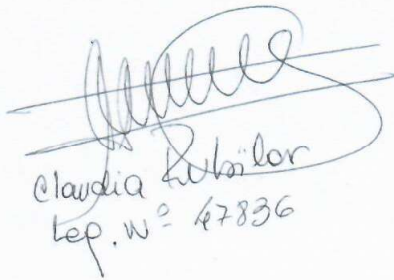 Claudia Rubilar
Leg. Nº 47836